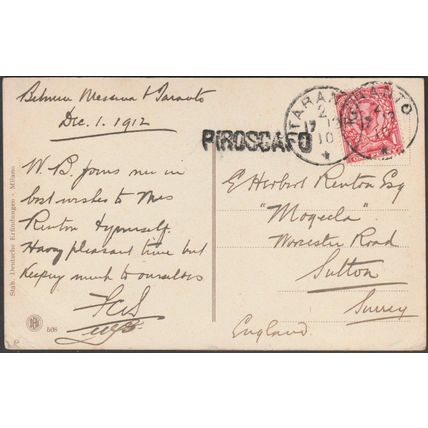 Between Messina & Taranto
Dec. 1. 1912
W. B. joins me in
best wishes to Mrs
Renton & yourself.
Having pleasant time but
keeping much to ourselves
E Herbert Renton Esq
"Moqeela"
Worcester Road
Sutton
Surrey
England
PIROSCAFO
TARANTO
TARANTO
Stab. Deutsche Erfindungen - Milano
508